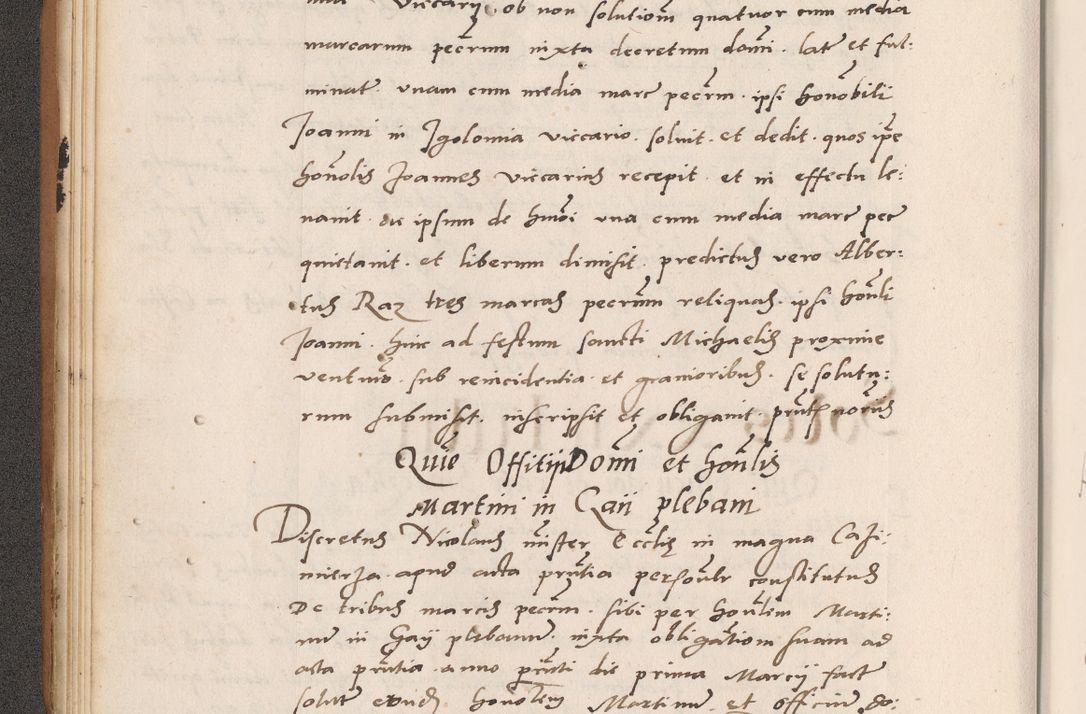 Viccarij ob non solutionem quatuor cum media
marcarum pecrum iuxta decretum domi late et ful:
minate unam cum media marc pecrm ipsi honobili
Joanni in Jgolomia viccario soluit et dedit quos ipse
honolis Joannes viccarius recepit et in effectu le:
uauit de ipsum de hmoi una cum media marc pec
quittauit et liberum dimisit predictus vero Alber:
tus Raz tres marcas pecrum reliquas ipsi honli
Joanni hinc ad festum sancti Michaelis proxime
venturo sub reincidentia et grauioribus se solutu:
rum submisit inscripsit et obligauit prntibus
Quie Offitij Domi et honlis
Martini in Gaii plebani
Discretus Nicolaus mister Ecclie in magna Cazi:
mierza apud acta prntia personlr constitutus
De tribus marcis pecrm sibi per honlem Marti:
num in Gaij plebanum iuxta obligationem suam ad
acta prntia anno prnti die prima Marcij fact
solut honolem Martinum et officium do: